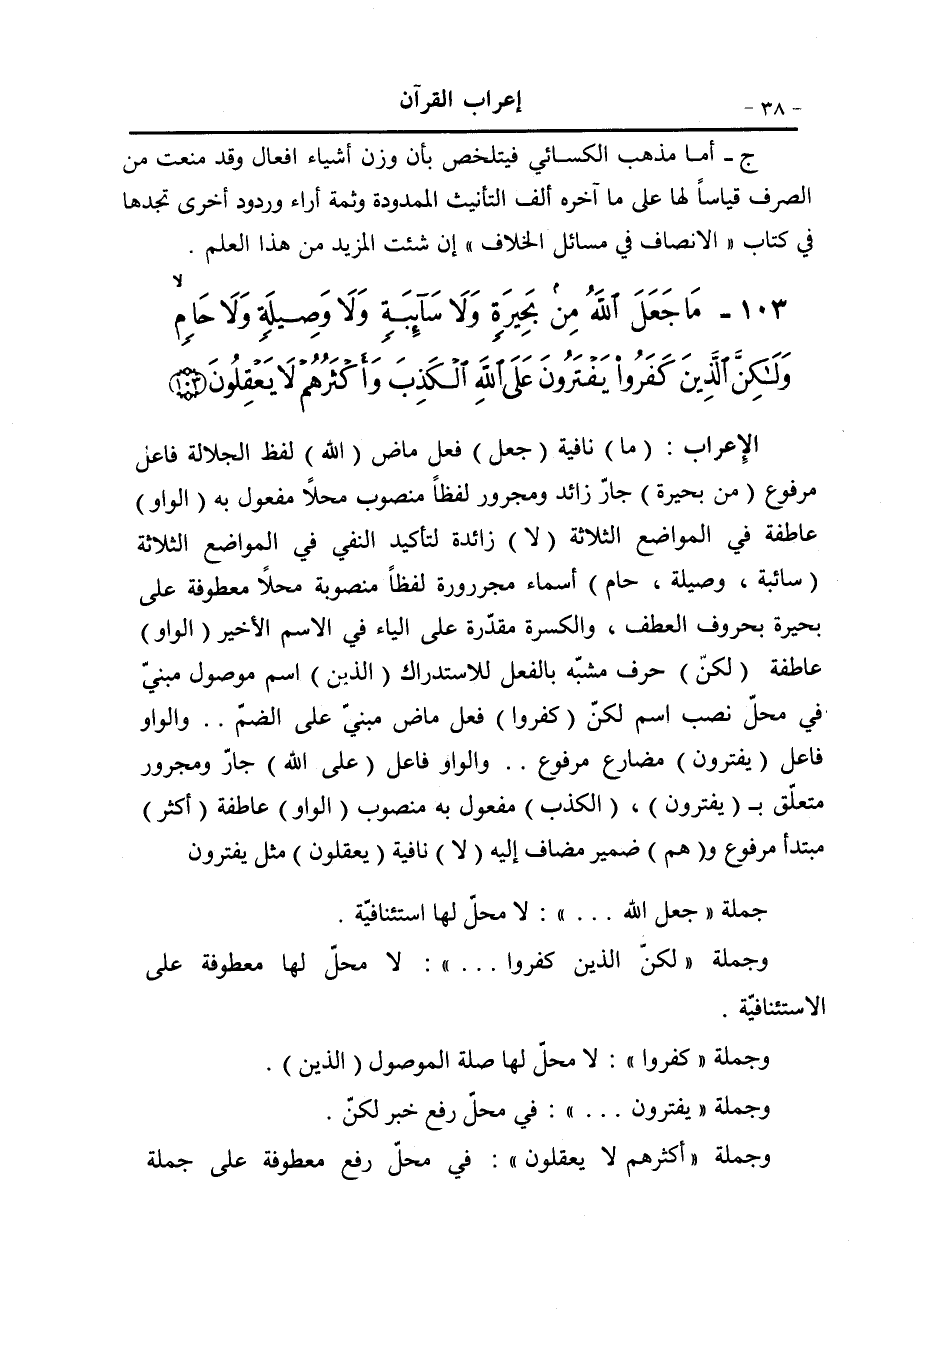 - ٣٨ -
إعراب القرآن
ج - أما مذهب الكسائي فيتلخص بأن وزن أشياء افعال وقد منعت من
الصرف قياساً لها على ما آخره ألف التأنيث الممدودة وثمة أراء وردود أخرى تجدها
في كتاب « الانصاف في مسائل الخلاف » إن شئت المزيد من هذا العلم .
١٠٣ - مَا جَعَلَ ٱللَّهُ مِنۢ بَحِيرَةٍ وَلَا سَآئِبَةٍ وَلَا وَصِيلَةٍ وَلَا حَامٍ ۙ
وَلَـٰكِنَّ ٱلَّذِينَ كَفَرُوا۟ يَفْتَرُونَ عَلَى ٱللَّهِ ٱلْكَذِبَ وَأَكْثَرُهُمْ لَا يَعْقِلُونَ ﴿١٠٣﴾
الإعراب : ( ما ) نافية ( جعل ) فعل ماض ( الله ) لفظ الجلالة فاعل
مرفوع ( من بحيرة ) جارّ زائد ومجرور لفظاً منصوب محلاً مفعول به ( الواو )
عاطفة في المواضع الثلاثة ( لا ) زائدة لتأكيد النفي في المواضع الثلاثة
( سائبة ، وصيلة ، حام ) أسماء مجررورة لفظاً منصوبة محلاً معطوفة على
بحيرة بحروف العطف ، والكسرة مقدّرة على الياء في الاسم الأخير ( الواو )
عاطفة ( لكنّ ) حرف مشبّه بالفعل للاستدراك ( الذين ) اسم موصول مبنيّ
في محلّ نصب اسم لكنّ ( كفروا ) فعل ماض مبنيّ على الضمّ . . والواو
فاعل ( يفترون ) مضارع مرفوع . . والواو فاعل ( على الله ) جارّ ومجرور
متعلّق بـ ( يفترون ) ، ( الكذب ) مفعول به منصوب ( الواو ) عاطفة ( أكثر )
مبتدأ مرفوع و( هم ) ضمير مضاف إليه ( لا ) نافية ( يعقلون ) مثل يفترون
جملة « جعل الله . . . » : لا محلّ لها استئنافيّة .
وجملة « لكنّ الذين كفروا . . . » : لا محلّ لها معطوفة على
الاستئنافيّة .
وجملة « كفروا » : لا محلّ لها صلة الموصول ( الذين ) .
وجملة « يفترون . . . » : في محلّ رفع خبر لكنّ .
وجملة « أكثرهم لا يعقلون » : في محلّ رفع معطوفة على جملة